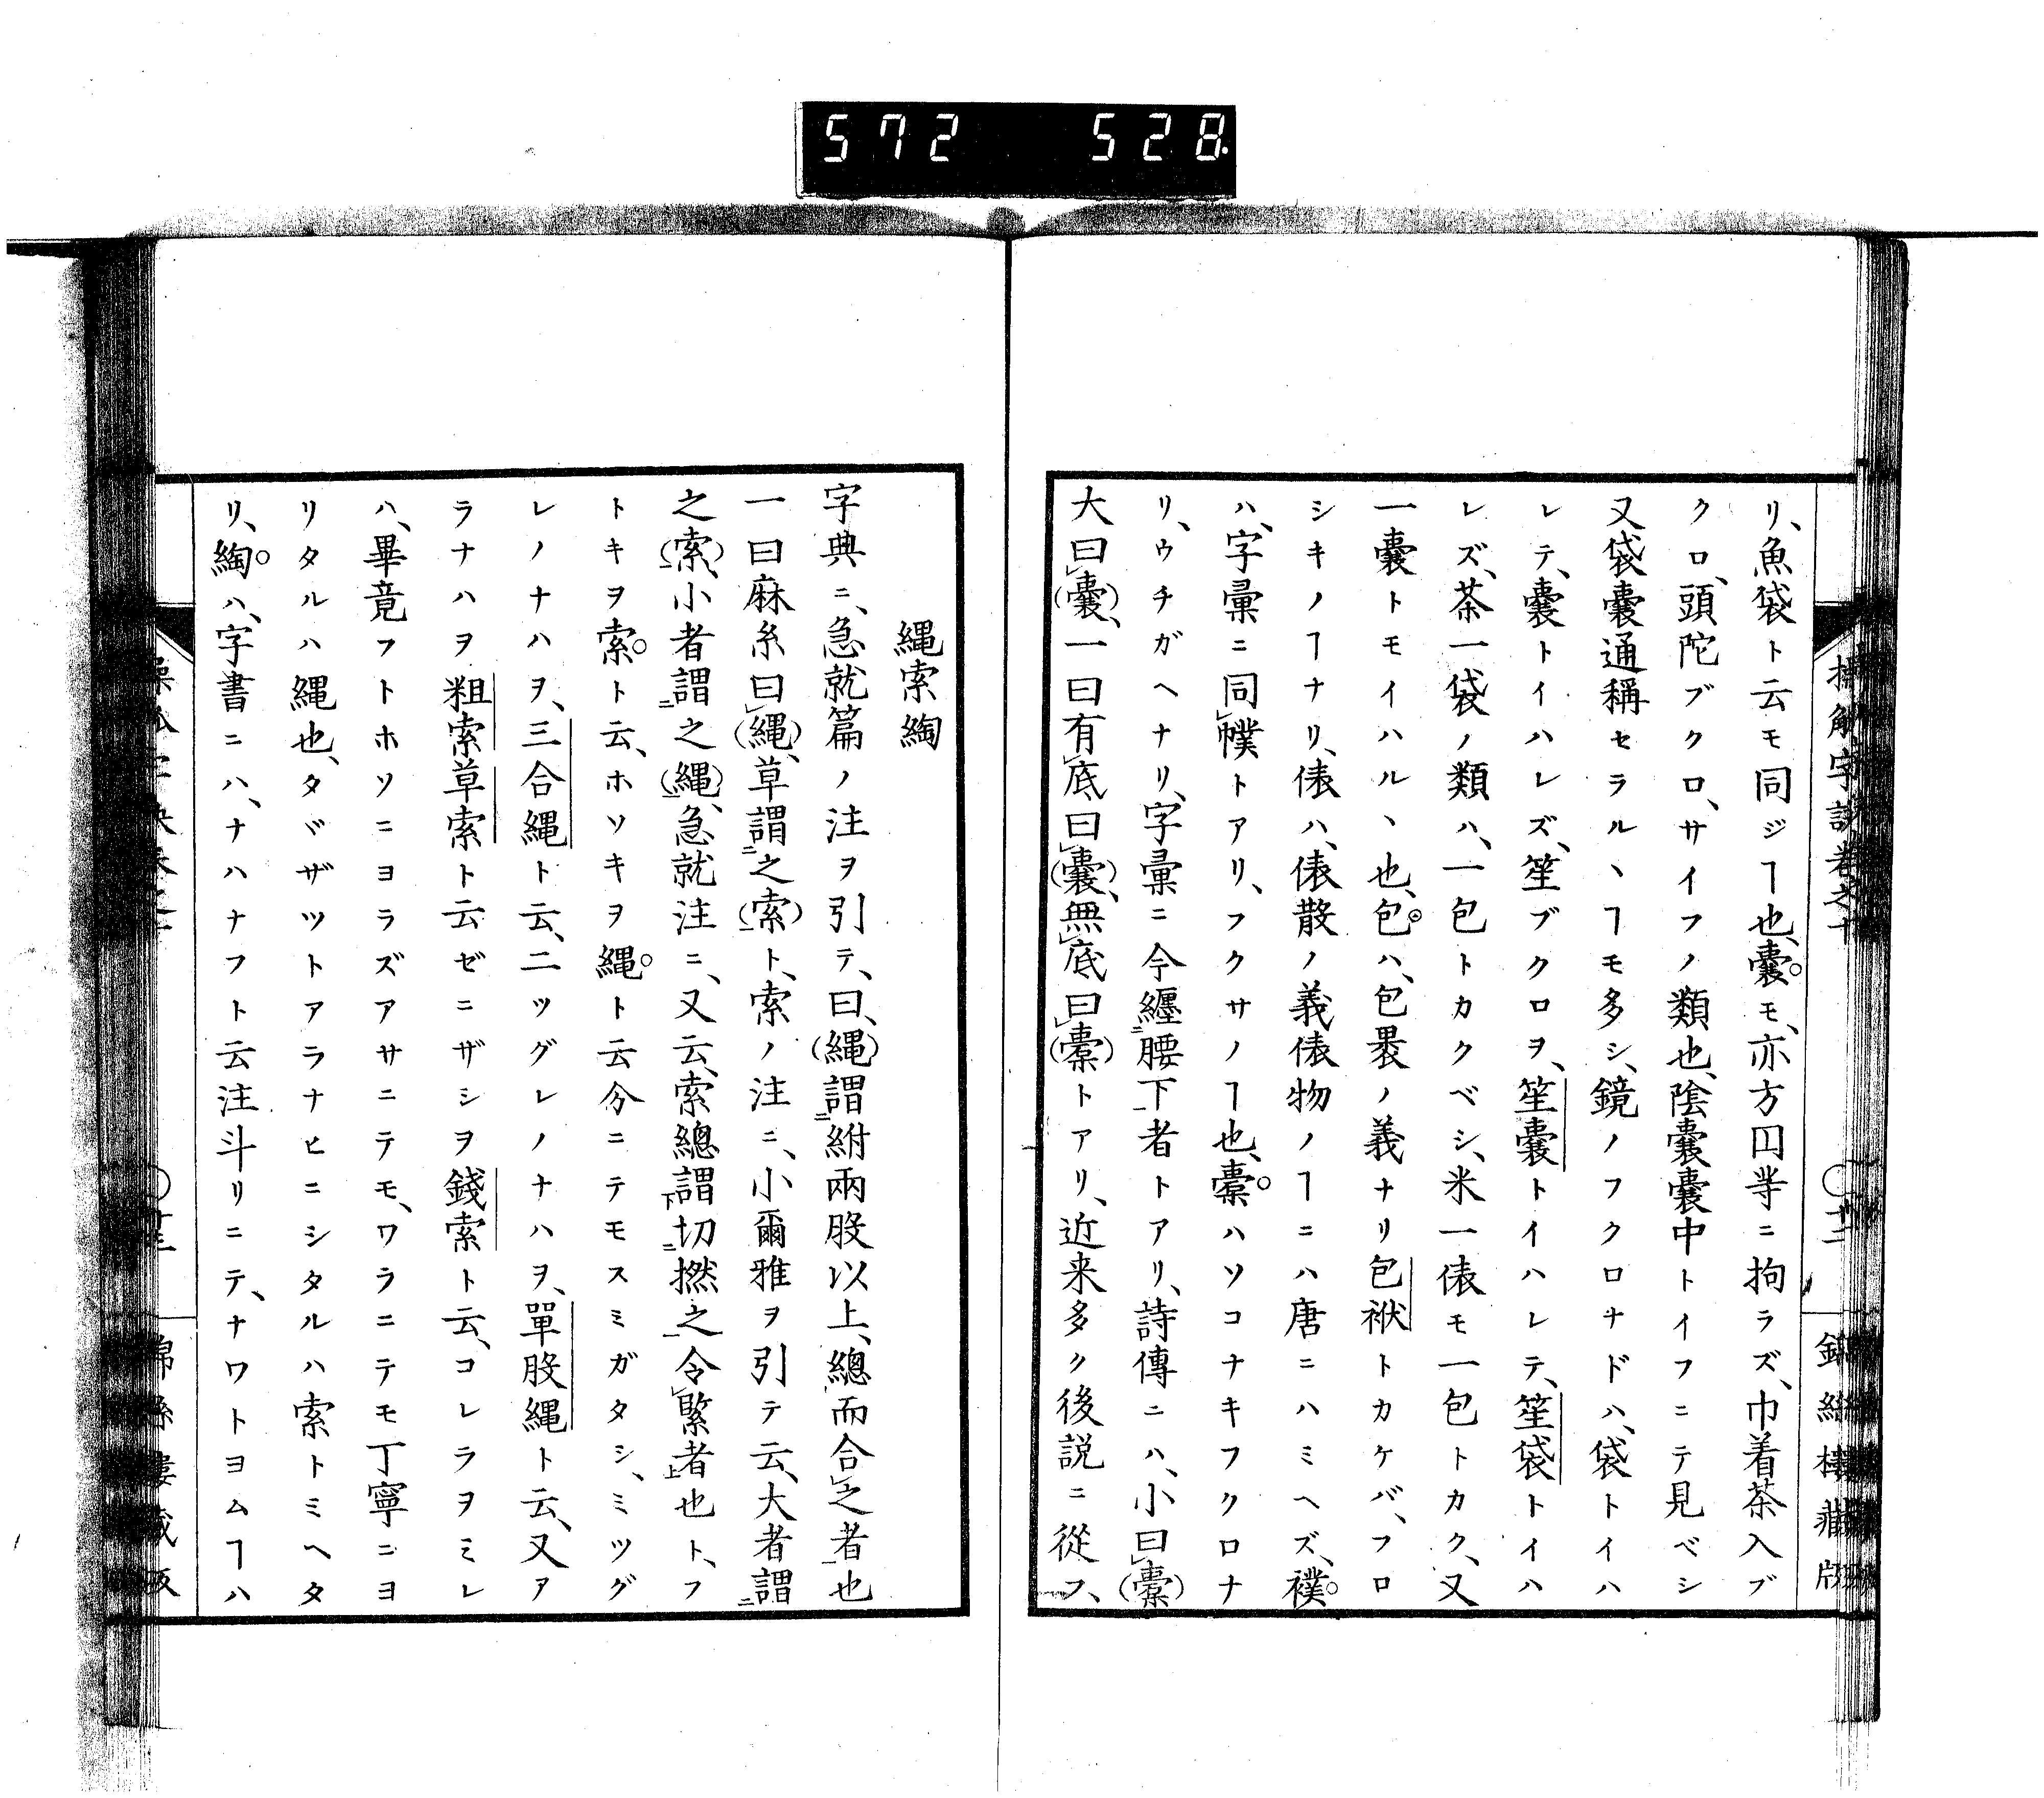 572 528
リ、魚袋ト云モ同ジヿ也、囊モ、亦方囗等ニ拘ラズ、巾着茶入ブ
クロ、頭陀ブクロ、サイフノ類也、陰囊囊中トイフニテ見ベシ
又袋囊通稱セラルヽヿモ多シ、鏡ノフクロナドハ、袋トイハ
レテ、囊トイハレズ、笙ブクロヲ、笙囊トイハレテ、笙袋トイハ
レズ、茶一袋ノ類ハ、一包トカクベシ、米一俵モ一包トカク、又
一囊トモイハルヽ也、包ハ、包褁ノ義ナリ包袱トカケバ、フロ
シキノヿナリ、俵ハ、俵散ノ義俵物ノヿニハ唐ニハミヘズ、襆
ハ、字彙ニ同㆑幞トアリ、フクサノヿ也、橐ハソコナキフクロナ
リ、ウチガヘナリ、字彙ニ今纏㆓腰下㆒者トアリ、詩傳ニハ、小曰㆑(橐)
大曰㆑(囊)、一曰有㆑底曰㆑(囊)、無㆑底曰㆑(橐)トアリ、近来多ク後説ニ從フ、
繩索綯
字典ニ、急就篇ノ注ヲ引テ、曰、(繩)謂㆘紨兩股以上、總而合㆑之者㆖也
一曰麻糸曰㆑(繩)、草謂㆓之(索)㆒ト、索ノ注ニ、小爾雅ヲ引テ云、大者謂㆓
之(索)㆒、小者謂㆓之(繩)㆒、急就注ニ、又云、索總謂㆘切㆓撚之㆒令㆑緊者㆖也ト、フ
トキヲ索ト云、ホソキヲ繩ト云今ニテモスミガタシ、ミツグ
レノナハヲ、三合繩ト云、二ツグレノナハヲ、單股繩ト云、又ア
ラナハヲ粗索草索ト云ゼニザシヲ錢索ト云、コレラヲミレ
ハ、畢竟フトホソニヨラズアサニテモ、ワラニテモ丁寧ニヨ
リタルハ繩也、タヾザツトアラナヒニシタルハ索トミヘタ
リ、綯ハ、字書ニハ、ナハナフト云注斗リニテ、ナワトヨムヿハ